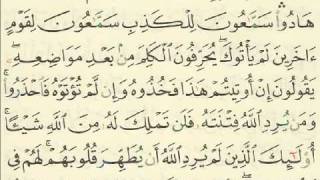 هَادُوا۟ سَمَّٰعُونَ لِلْكَذِبِ سَمَّٰعُونَ لِقَوْمٍ
ءَاخَرِينَ لَمْ يَأْتُوكَ ۖ يُحَرِّفُونَ ٱلْكَلِمَ مِنۢ بَعْدِ مَوَاضِعِهِۦ ۖ
يَقُولُونَ إِنْ أُوتِيتُمْ هَٰذَا فَخُذُوهُ وَإِن لَّمْ تُؤْتَوْهُ فَٱحْذَرُوا۟ ۚ
وَمَن يُرِدِ ٱللَّهُ فِتْنَتَهُۥ فَلَن تَمْلِكَ لَهُۥ مِنَ ٱللَّهِ شَيْـًٔا ۚ
أُو۟لَٰٓئِكَ ٱلَّذِينَ لَمْ يُرِدِ ٱللَّهُ أَن يُطَهِّرَ قُلُوبَهُمْ ۚ لَهُمْ فِى